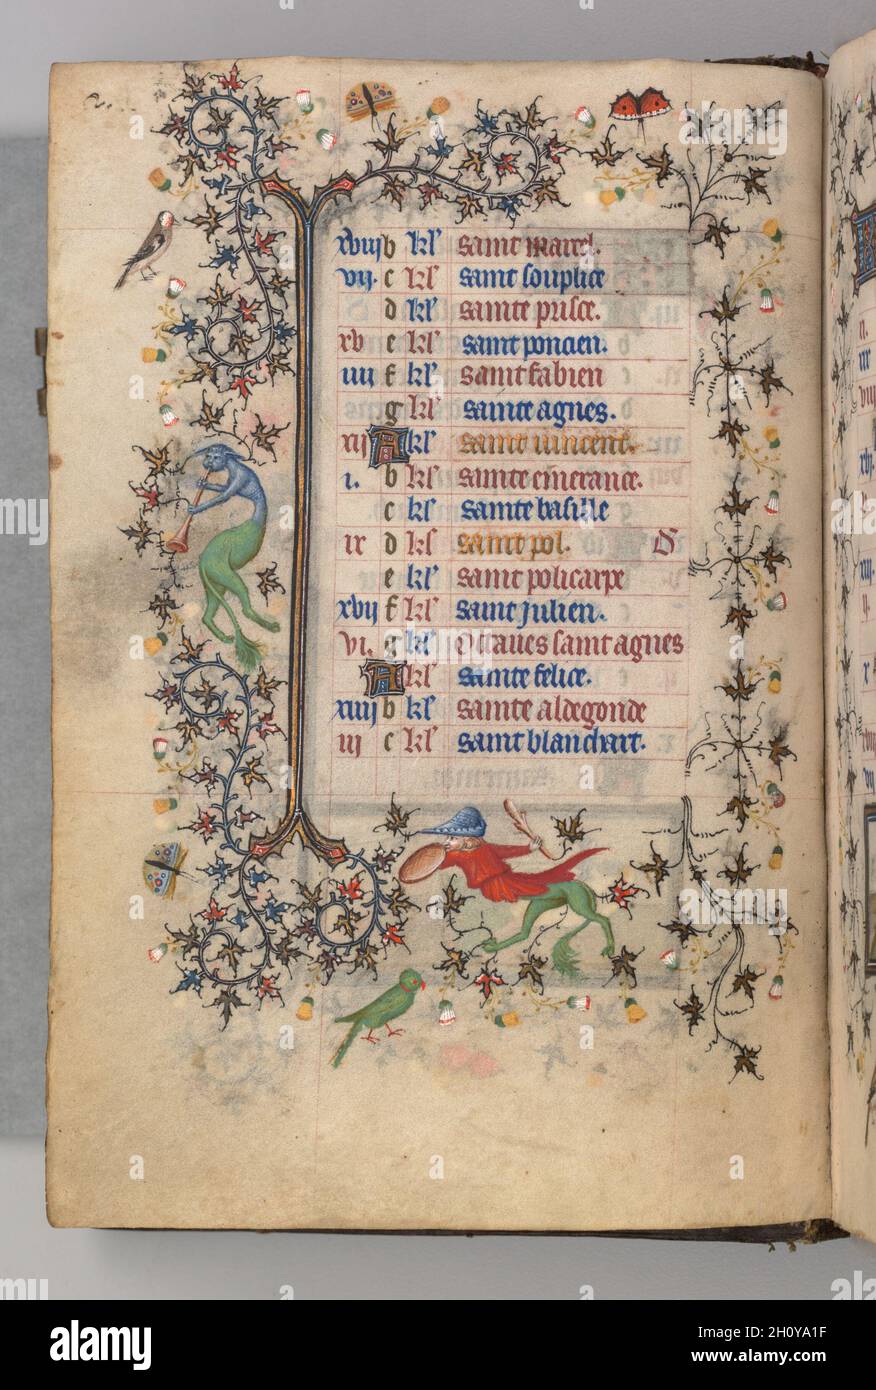 xviij b kl' saint marcel.
vij. c kl' saint souplice
d kl' sainte prisce.
xv e kl' saint poncien.
iiij f kl' saint fabien
g kl' sainte agnes.
xij A kl' saint vincent.
i. b kl' sainte emerance.
c kl' sainte basille
ix d kl' saint pol. D
e kl' saint policarpe
xvij f kl' saint julien.
vi. g kl' Octaues saint agnes
A kl' sainte felice.
xiiij b kl' sainte aldegonde
iij c kl' saint blanchart.
alamy
Image ID: 2H0YA1F
www.alamy.com